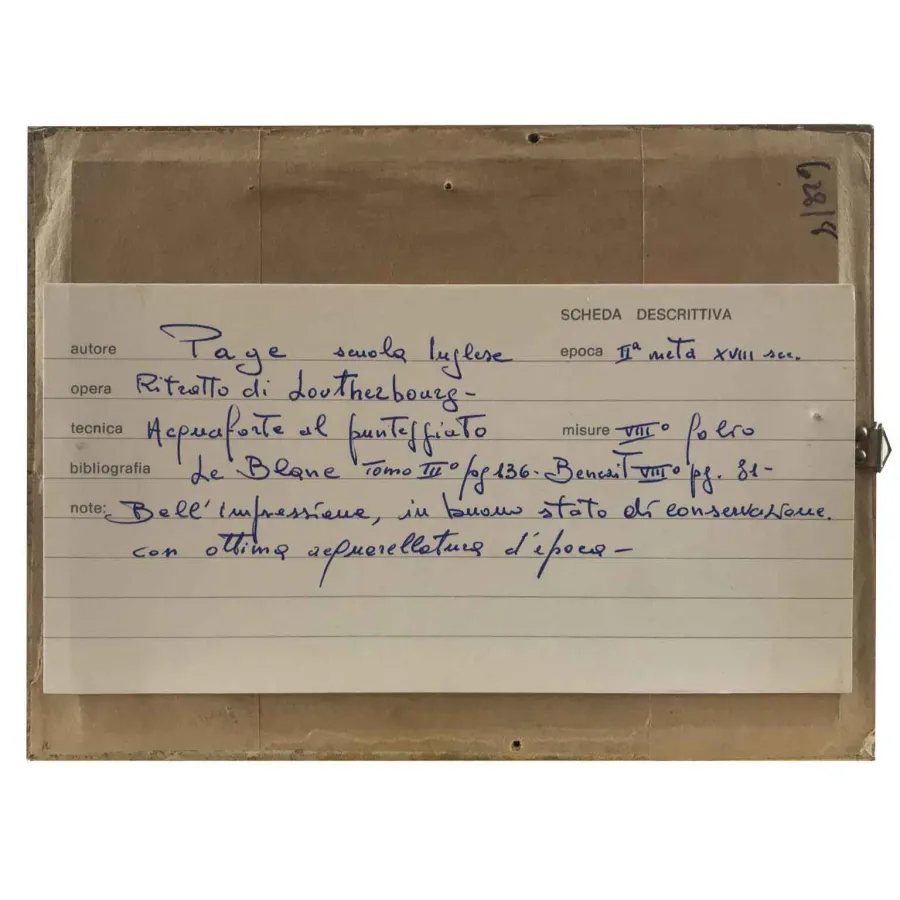 628/9
SCHEDA DESCRITTIVA
autore Page scuola Inglese epoca IIª metà XVIII sec.
opera Ritratto di Loutherbourg -
tecnica Acquaforte al punteggiato misure VIII° folio
bibliografia Le Blanc Tomo III° pg 136 - Benezit VIII° pg. 81 -
note: Bell'impressione, in buono stato di conservazione.
con ottima acquarellatura d'epoca -